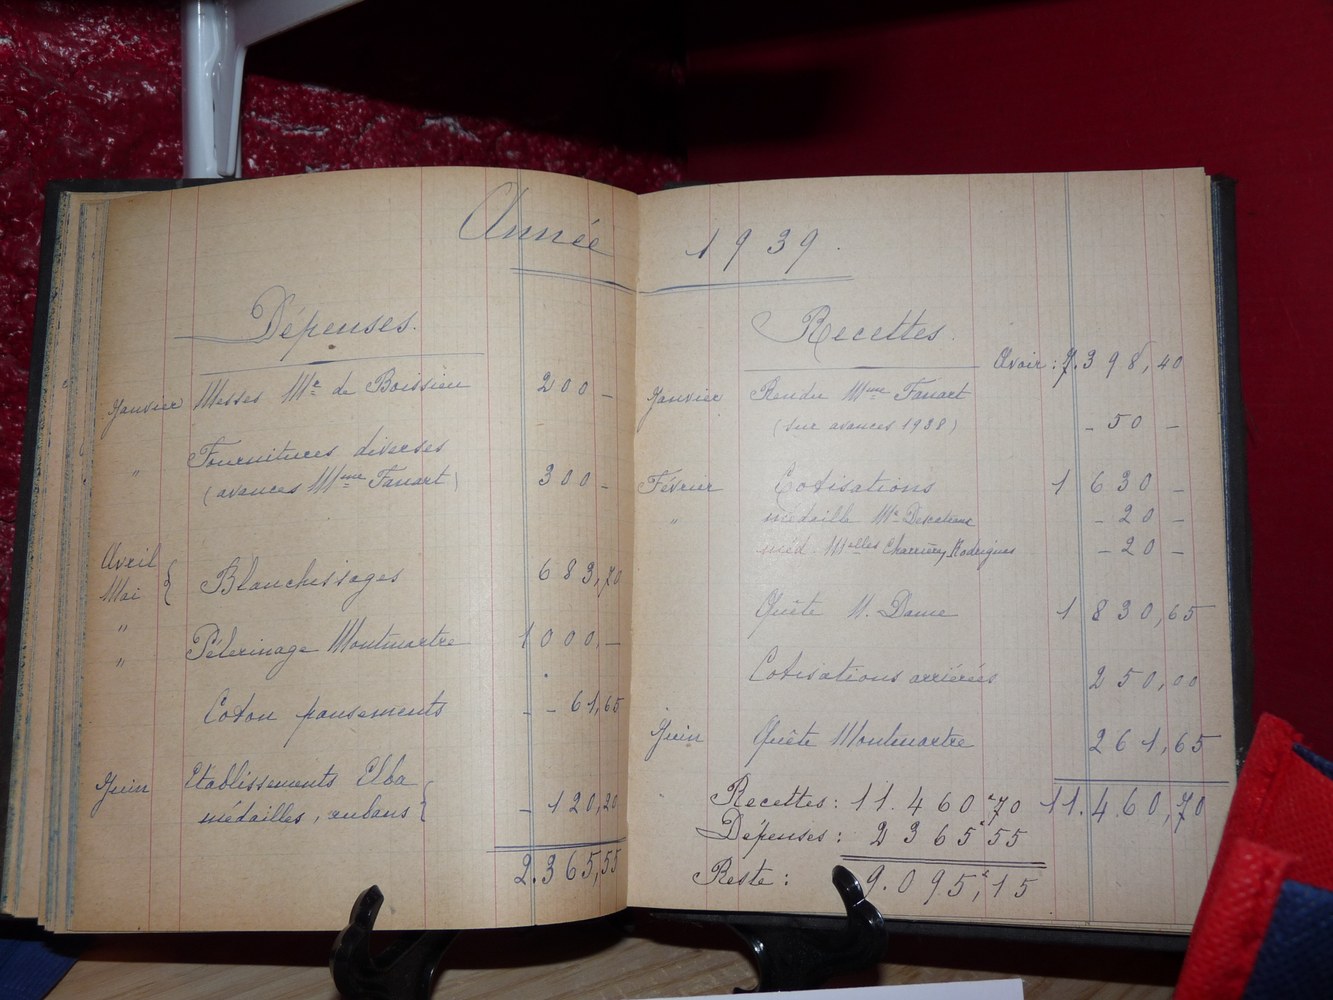 Année 1939.
Dépenses.
Janvier Messes Mr de Boissieu 200 -
" Fournitures diverses
(avances Mme Fanart) 300 -
Avril
Mai { Blanchissages 683,70
"
" Pélerinage Montmartre 1000,-
Coton pansements - - 61,65
Juin Etablissements Elba
médailles, rubans { - 120,20
2.365,55
Recettes.
Avoir : 7.398,40
Janvier Rendu Mme Fanart
(sur avances 1938) - 50 -
Février Cotisations 1630 -
" médaille Mr - 20 -
méd. Melles Rodrigues - 20 -
Quête N. Dame 1830,65
Cotisations arriérées 250,00
Juin Quête Montmartre 261,65
Recettes : 11.460,70 11.460,70
Dépenses : 2365,55
Reste : 9.095,15